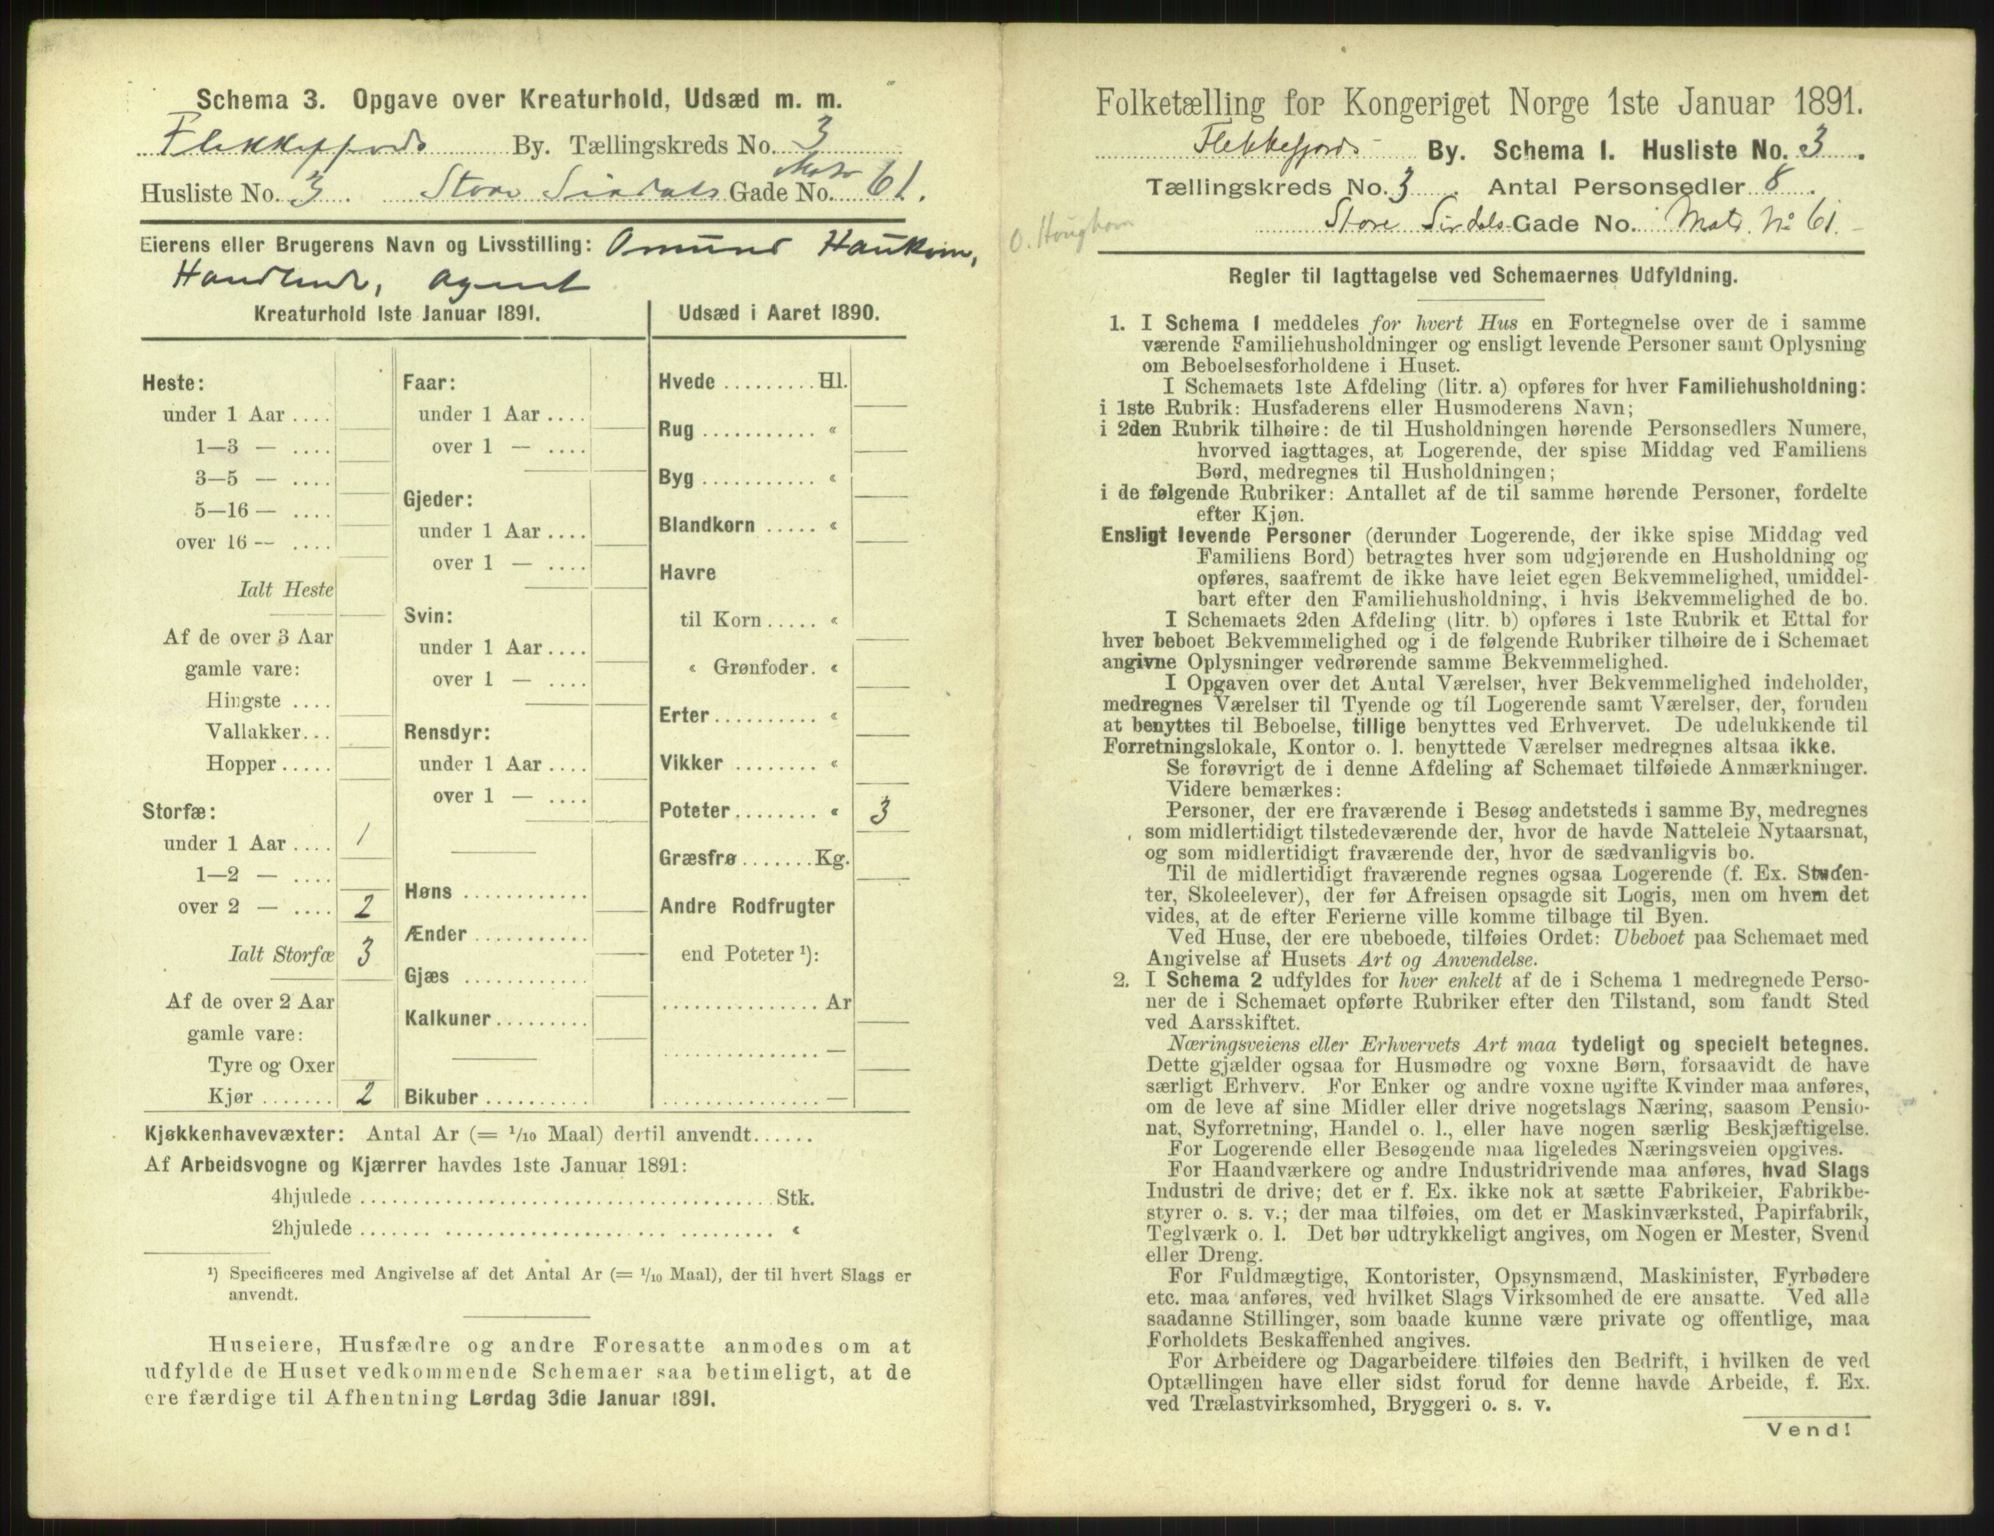 Schema 3. Opgave over Kreaturhold, Udsæd m. m.
Flekkefjords By. Tællingskreds No. 3
Husliste No. 3. Store Sirdals Gade No. Matr 61.
Eierens eller Brugerens Navn og Livsstilling: Omund Haukom,
Handlende, Agent
Kreaturhold 1ste Januar 1891.
Heste:
under 1 Aar ....
1—3 — ....
3—5 — ....
5—16 — ....
over 16 — ....
Ialt Heste
Af de over 3 Aar
gamle vare:
Hingste ....
Vallakker...
Hopper .....
Storfæ:
under 1 Aar .... 1
1—2 — ....
over 2 — .... 2
Ialt Storfæ 3
Af de over 2 Aar
gamle vare:
Tyre og Oxer
Kjør ....... 2
Faar:
under 1 Aar ....
over 1 — ....
Gjeder:
under 1 Aar ....
over 1 — ....
Svin:
under 1 Aar ....
over 1 — ....
Rensdyr:
under 1 Aar ....
over 1 — ....
Høns ............
Ænder ...........
Gjæs ............
Kalkuner.........
Bikuber ..........
Udsæd i Aaret 1890.
Hvede ......... Hl.
Rug ........... «
Byg ........... «
Blandkorn ..... «
Havre
til Korn ..... «
« Grønfoder. «
Erter.......... «
Vikker ........ «
Poteter........ « 3
Græsfrø ....... Kg.
Andre Rodfrugter
end Poteter ¹):
............... Ar
............... —
............... —
Kjøkkenhavevæxter: Antal Ar (= 1/10 Maal) dertil anvendt......
Af Arbeidsvogne og Kjærrer havdes 1ste Januar 1891:
4hjulede ........................................ Stk.
2hjulede ........................................ «
¹) Specificeres med Angivelse af det Antal Ar (= 1/10 Maal), der til hvert Slags er
anvendt.
Huseiere, Husfædre og andre Foresatte anmodes om at
udfylde de Huset vedkommende Schemaer saa betimeligt, at de
ere færdige til Afhentning Lørdag 3die Januar 1891.
Folketælling for Kongeriget Norge 1ste Januar 1891.
Flekkefjords By. Schema 1. Husliste No. 3.
Tællingskreds No. 3. Antal Personsedler 8.
Store Sirdals Gade No. Matr. No 61.
O. Houghom
Regler til Iagttagelse ved Schemaernes Udfyldning.
1. I Schema 1 meddeles for hvert Hus en Fortegnelse over de i samme
værende Familiehusholdninger og ensligt levende Personer samt Oplysning
om Beboelsesforholdene i Huset.
I Schemaets 1ste Afdeling (litr. a) opføres for hver Familiehusholdning:
i 1ste Rubrik: Husfaderens eller Husmoderens Navn;
i 2den Rubrik tilhøire: de til Husholdningen hørende Personsedlers Numere,
hvorved iagttages, at Logerende, der spise Middag ved Familiens
Bord, medregnes til Husholdningen;
i de følgende Rubriker: Antallet af de til samme hørende Personer, fordelte
efter Kjøn.
Ensligt levende Personer (derunder Logerende, der ikke spise Middag ved
Familiens Bord) betragtes hver som udgjørende en Husholdning og
opføres, saafremt de ikke have leiet egen Bekvemmelighed, umiddel-
bart efter den Familiehusholdning, i hvis Bekvemmelighed de bo.
I Schemaets 2den Afdeling (litr. b) opføres i 1ste Rubrik et Ettal for
hver beboet Bekvemmelighed og i de følgende Rubriker tilhøire de i Schemaet
angivne Oplysninger vedrørende samme Bekvemmelighed.
I Opgaven over det Antal Værelser, hver Bekvemmelighed indeholder,
medregnes Værelser til Tyende og til Logerende samt Værelser, der, foruden
at benyttes til Beboelse, tillige benyttes ved Erhvervet. De udelukkende til
Forretningslokale, Kontor o. l. benyttede Værelser medregnes altsaa ikke.
Se forøvrigt de i denne Afdeling af Schemaet tilføiede Anmærkninger.
Videre bemærkes:
Personer, der ere fraværende i Besøg andetsteds i samme By, medregnes
som midlertidigt tilstedeværende der, hvor de havde Natteleie Nytaarsnat,
og som midlertidigt fraværende der, hvor de sædvanligvis bo.
Til de midlertidigt fraværende regnes ogsaa Logerende (f. Ex. Studen-
ter, Skoleelever), der før Afreisen opsagde sit Logis, men om hvem det
vides, at de efter Ferierne ville komme tilbage til Byen.
Ved Huse, der ere ubeboede, tilføies Ordet: Ubeboet paa Schemaet med
Angivelse af Husets Art og Anvendelse.
2. I Schema 2 udfyldes for hver enkelt af de i Schema 1 medregnede Perso-
ner de i Schemaet opførte Rubriker efter den Tilstand, som fandt Sted
ved Aarsskiftet.
Næringsveiens eller Erhvervets Art maa tydeligt og specielt betegnes.
Dette gjælder ogsaa for Husmødre og voxne Børn, forsaavidt de have
særligt Erhverv. For Enker og andre voxne ugifte Kvinder maa anføres,
om de leve af sine Midler eller drive nogetslags Næring, saasom Pensio-
nat, Syforretning, Handel o. l., eller have nogen særlig Beskjæftigelse.
For Logerende eller Besøgende maa ligeledes Næringsveien opgives.
For Haandværkere og andre Industridrivende maa anføres, hvad Slags
Industri de drive; det er f. Ex. ikke nok at sætte Fabrikeier, Fabrikbe-
styrer o. s. v.; der maa tilføies, om det er Maskinværksted, Papirfabrik,
Teglværk o. l. Det bør udtrykkeligt angives, om Nogen er Mester, Svend
eller Dreng.
For Fuldmægtige, Kontorister, Opsynsmænd, Maskinister, Fyrbødere
etc. maa anføres, ved hvilket Slags Virksomhed de ere ansatte. Ved alle
saadanne Stillinger, som baade kunne være private og offentlige, maa
Forholdets Beskaffenhed angives.
For Arbeidere og Dagarbeidere tilføies den Bedrift, i hvilken de ved
Optællingen have eller sidst forud for denne havde Arbeide, f. Ex.
ved Trælastvirksomhed, Bryggeri o. s. v.
Vend!